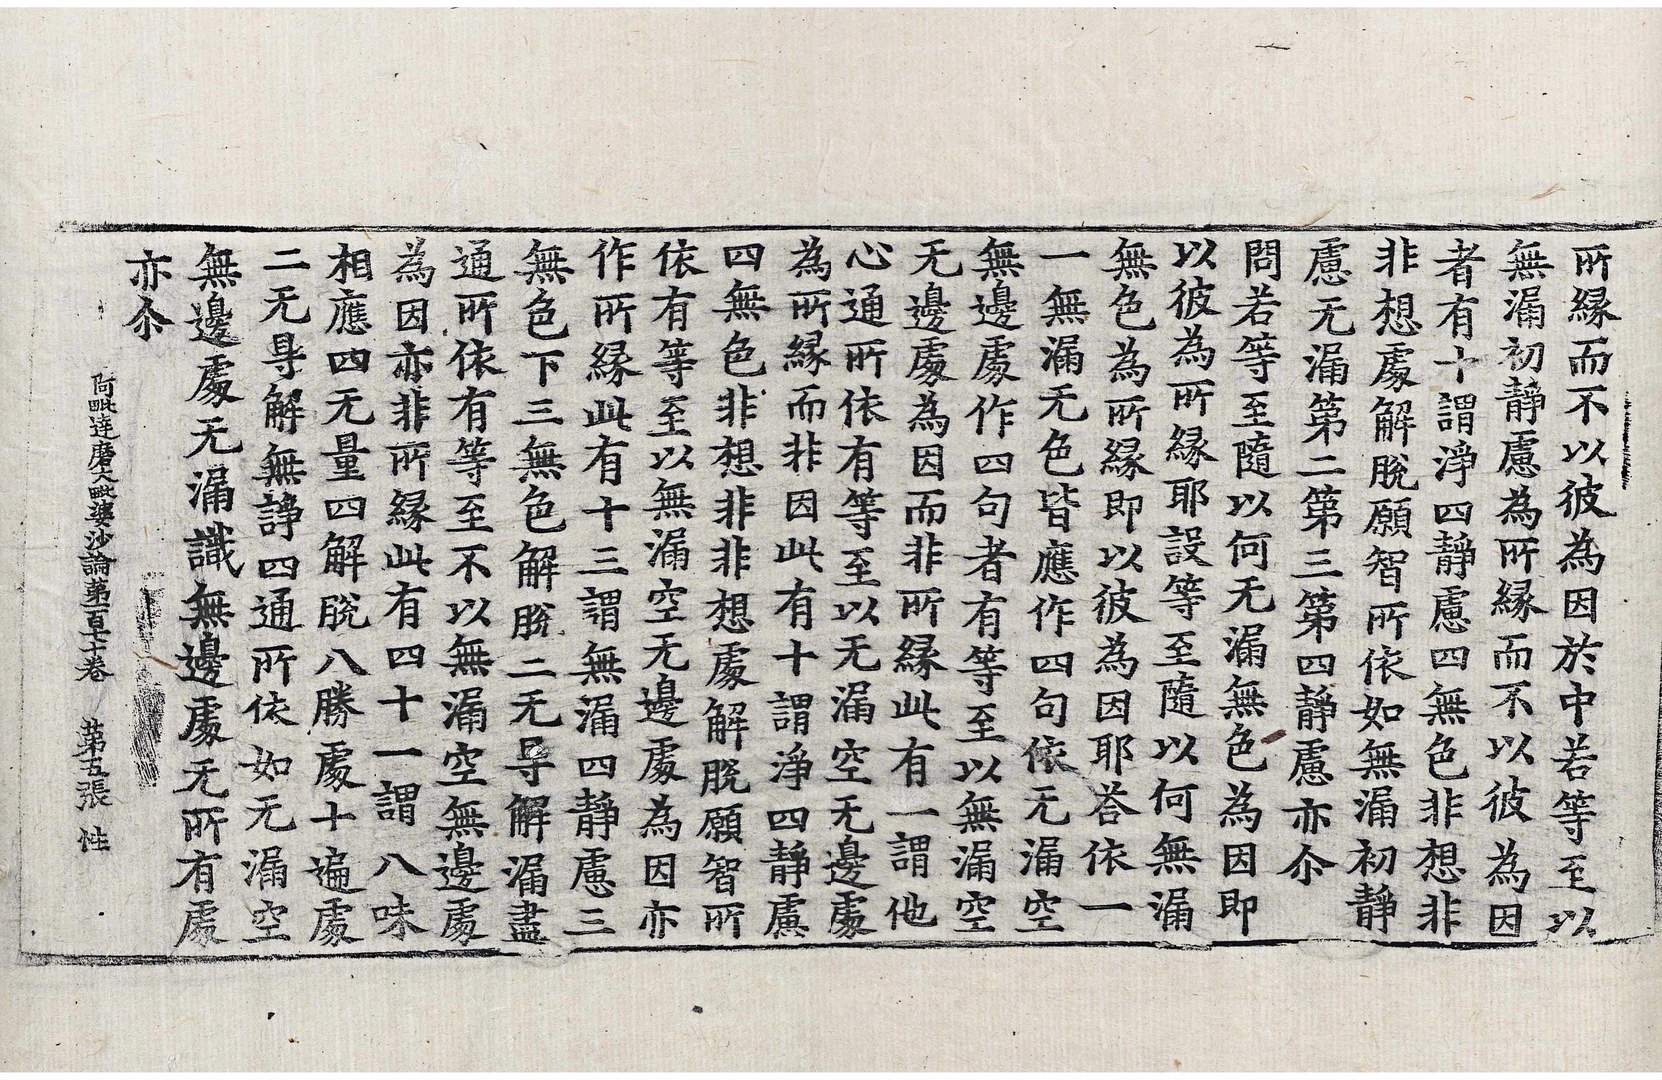 所縁而不以彼為因於中若等至以
無漏初靜慮為所縁而不以彼為因
者有十謂淨四靜慮四無色非想非
非想處解脫願智所依如無漏初靜
慮无漏第二第三第四靜慮亦尒
問若等至隨以何无漏無色為因即
以彼為所縁耶設等至隨以何無漏
無色為所縁即以彼為因耶荅依一
一無漏无色皆應作四句依无漏空
無邊處作四句者有等至以無漏空
无邊處為因而非所縁此有一謂他
心通所依有等至以无漏空无邊處
為所縁而非因此有十謂淨四靜慮
四無色非想非非想處解脫願智所
依有等至以無漏空无邊處為因亦
作所縁此有十三謂無漏四靜慮三
無色下三無色解脫二无㝵解漏盡
通所依有等至不以無漏空無邊處
為因亦非所縁此有四十一謂八味
相應四无量四解脫八勝處十遍處
二无㝵解無諍四通所依如无漏空
無邊處无漏識無邊處无所有處
亦尒
阿毗達磨大毗婆沙論第一百七十卷 第五張 性